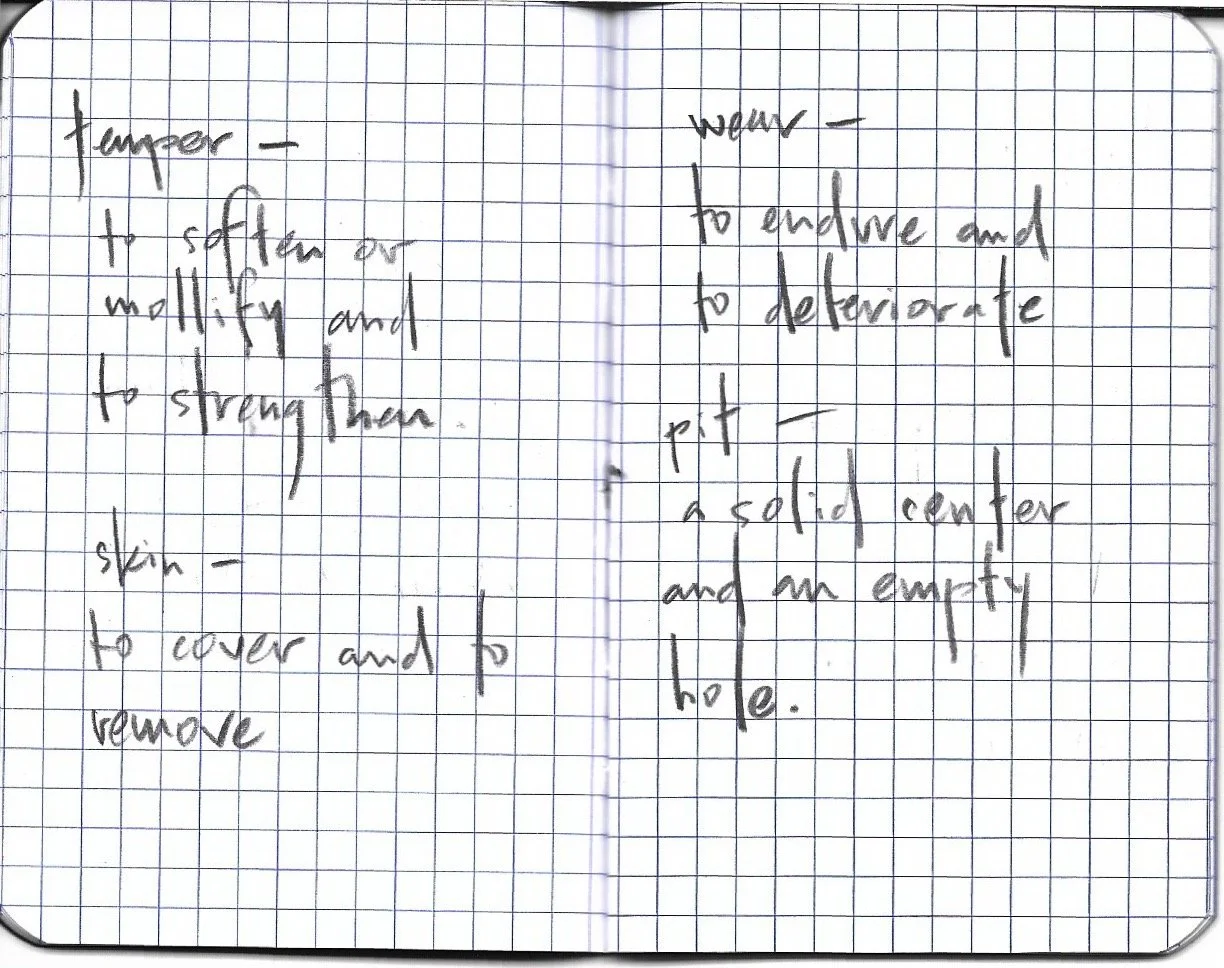 temper —
to soften or
mollify and
to strengthen.
skin —
to cover and to
remove
wear —
to endure and
to deteriorate
pit —
a solid center
and an empty
hole.